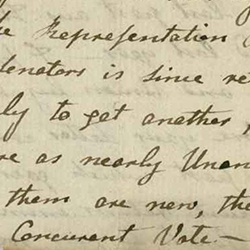 Representation
Senators is since re
ly to get another,
re as nearly Unan
them are new, the
Concurrent Vote.—